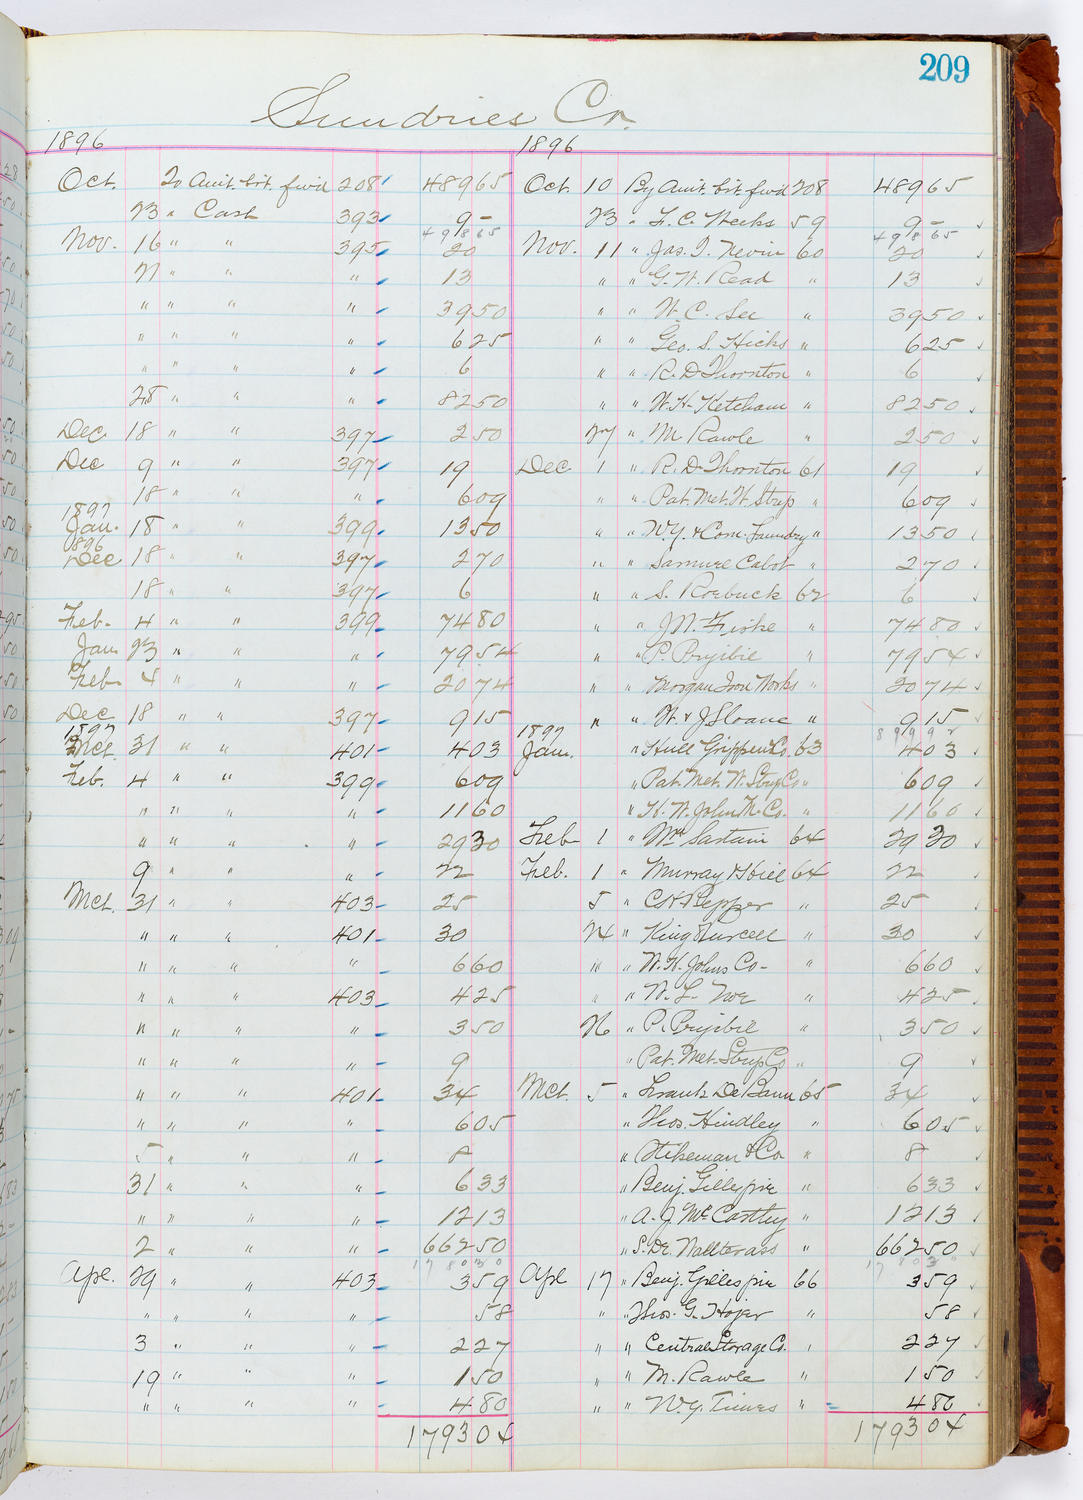 209
Sundries Co.
1896 1896
Oct. To Amt. brt. fwd 208 48965 Oct. 10 By Amt. brt. fwd 208 48965
23 " Cash 393 9- 23 " F. C. Weeks 59 9-
49865 49865
Nov. 16 " " 395 20 Nov. 11 " Jas. T. Nevin 60 20
21 " " " 13 " " G. W. Read " 13
" " " " 3950 " " W. C. See " 3950
" " " " 625 " " Geo. S. Hicks " 625
" " " " 6 " " R. D Thornton " 6
28 " " " 8250 " " W. H. Ketcham " 8250
Dec. 18 " " 397 250 27 " M Rawle " 250
Dec 9 " " 397 19 Dec 1 " R. D. Thornton 61 19
18 " " " 609 " " Pat. Met. W. Strip " 609
1897
Jan. 18 " " 399 1350 " " N.Y. & Com. Foundry " 1350
1896
Dec 18 " " 397 270 " " Samuel Cabot " 270
18 " " 397 6 " " S. Roebuck 62 6
Feb. 4 " " 399 7480 " " J. N. Fiske " 7480
Jan 23 " " " 7954 " " P. Pryibil " 7954
Feb 4 " " " 2074 " " Morgan Iron Works " 2074
Dec 18 " " 397 915 " " W. & J Sloane " 915
1897 1897 89992
Mch. 31 " " 401 403 Jan. " Hull Grippen Co. 63 403
Feb. 4 " " 399 609 " Pat. Met. W. Strip Co " 609
" " " " 1160 " H. W. John M. Co. " 1160
" " " " 2930 Feb 1 " Wm Sartain 64 2930
9 " " " 22 Feb. 1 " Murray & Hill 64 22
Mch. 31 " " 403 25 5 " C H Pepper " 25
" " " 401 30 24 " King Purcell " 30
" " " " 660 " " W. H. Johns Co- " 660
" " " 403 425 " " W. L. Noe " 425
" " " " 350 26 " P. Pryibil " 350
" " " " 9 " Pat. Met. Strip Co " 9
" " " 401 34 Mch. 5 " Frank De Bann 65 34
" " " " 605 " Thos. Hindley " 605
5 " " " 8 " Stikeman & Co " 8
31 " " " 633 " Benj. Gillespie " 633
" " " " 1213 " A. J. McCarthy " 1213
2 " " " 66250 " S. De Wallterass " 66250
178030 178030
Apl. 29 " " 403 359 Apl 17 " Benj. Gillespie 66 359
" " " " 58 " " Thos. G. Hojer " 58
3 " " " 227 " " Central Storage Co. " 227
19 " " " 150 " " M. Rawle " 150
" " " " 480 " " N.Y. Times " 480
179304 179304